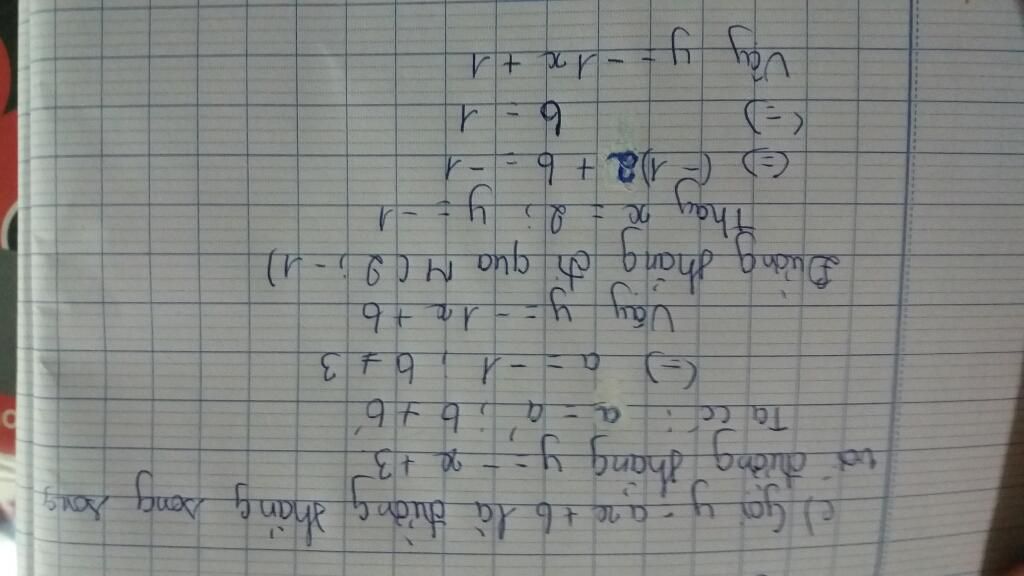 c) Gọi y = ax + b là đường thẳng song song
với đường thẳng y = - x + 3
Ta có : a = a' ; b ≠ b'
(=) a = - 1 ; b ≠ 3
Vậy y = - 1x + b
Đường thẳng đi qua M ( 2 ; - 1 )
Thay x = 2 ; y = - 1
(=) (- 1) 2 + b = - 1
(=) b = 1
Vậy y = - 1x + 1